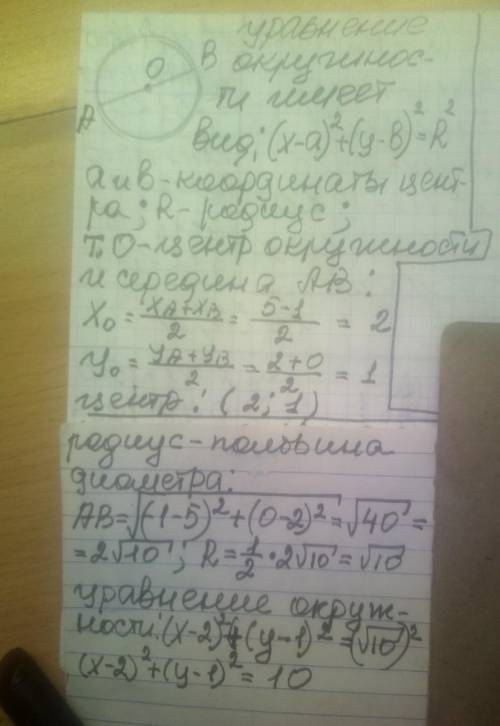 уравнение
О В окружнос-
ти имеет
А
вид: (x-a)²+(y-в)²=R²
а и в - координаты цент-
ра; R - радиус;
т.О - центр окружности
и середина АВ:
X₀ = (XA+XB)/2 = (5-1)/2 = 2
y₀ = (yA+yB)/2 = (2+0)/2 = 1
центр: (2; 1)
радиус - половина
диаметра:
AB=√((-1-5)²+(0-2)²)=√40=
=2√10; R=1/2·2√10=√10
уравнение окруж-
ности: (x-2)²+(y-1)²=(√10)²
(x-2)²+(y-1)²=10